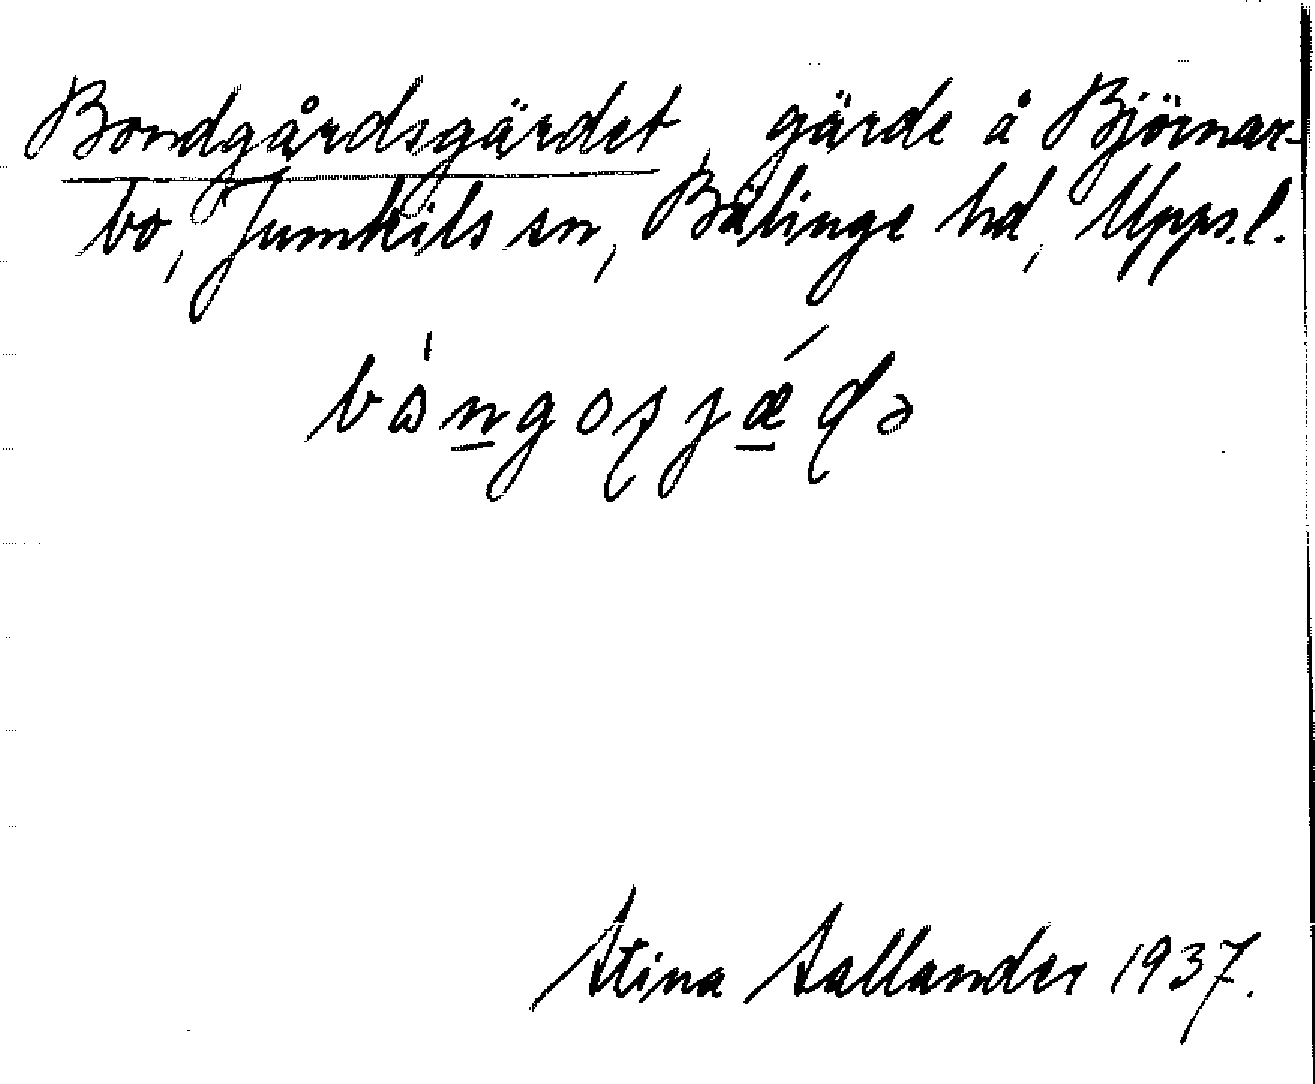 Bondgårdsgärdet, gärde å Björnar-
bo, Jumkils sn, Bälinge hd, Upps.l.
Stina Sallander 1937.